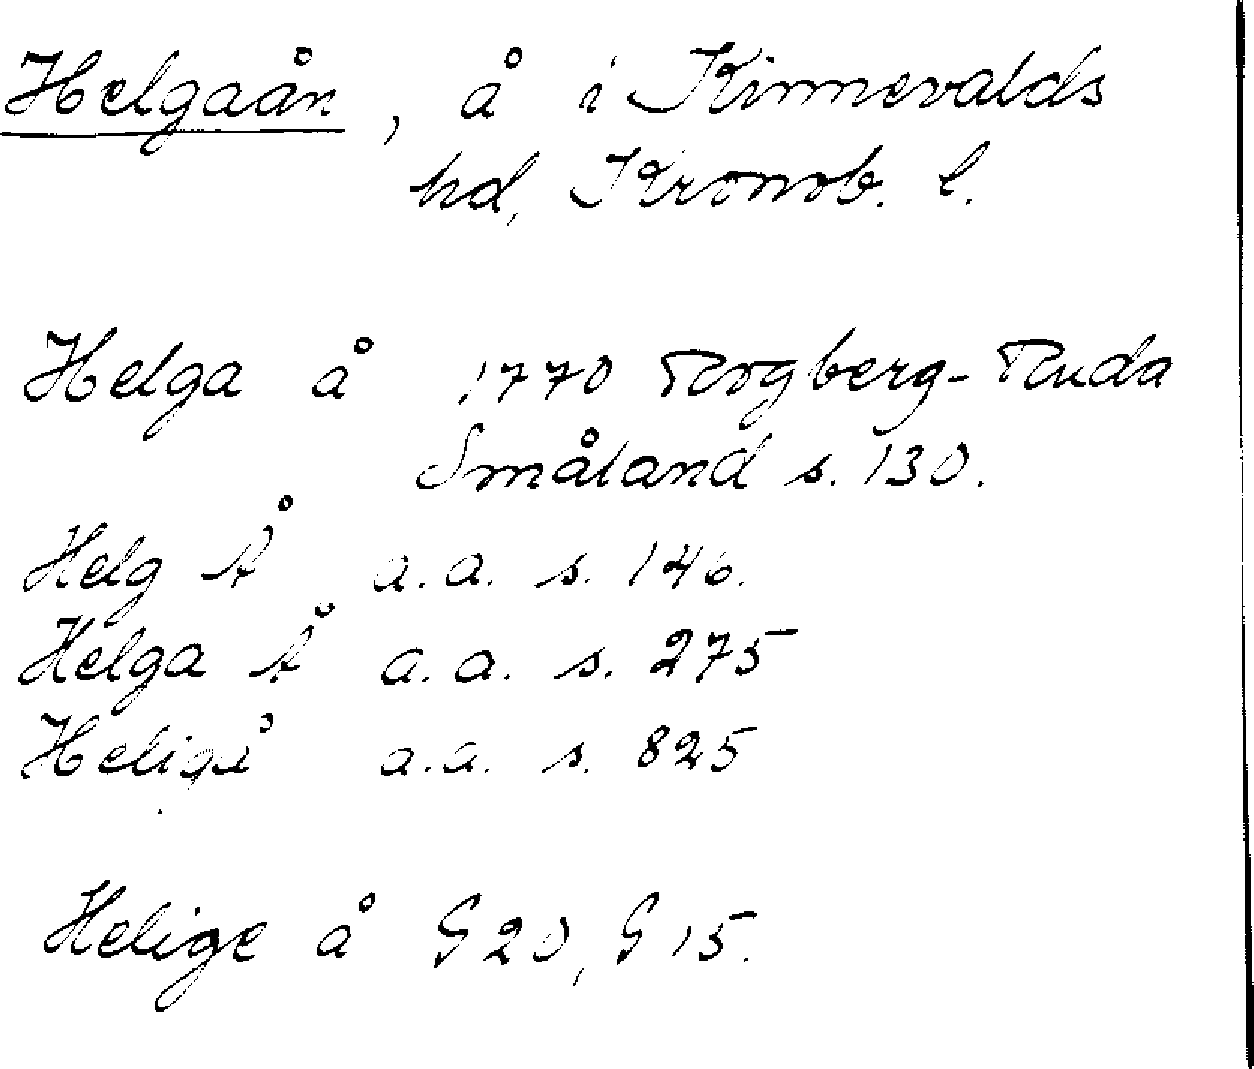 Helgaån, å i Kinnevalds
hd, Kronob. l.
Helga å 1770 Rogberg-Ruda
Småland s. 130.
Helg Å a.a. s. 146.
Helga Å a.a. s. 275
Heligå a.a. s. 825
Helige å G20, G15.